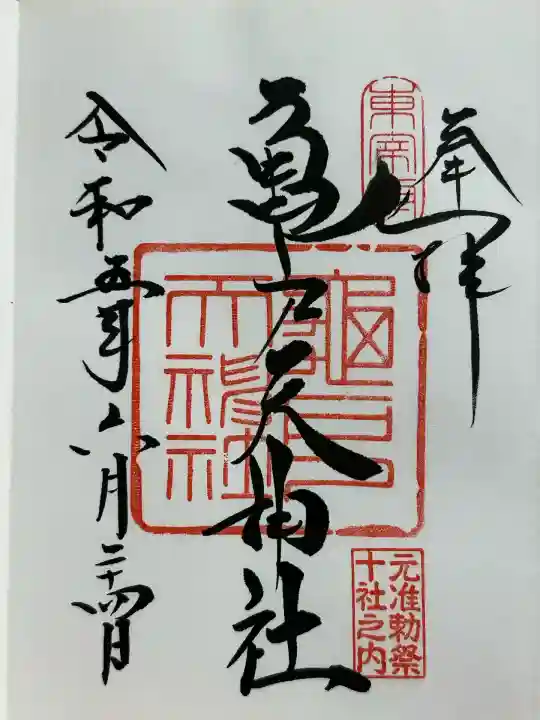 奉拝
亀戸天神社
令和五年六月二十四日
東宰府
亀戸
天神社
元准勅祭
十社之内